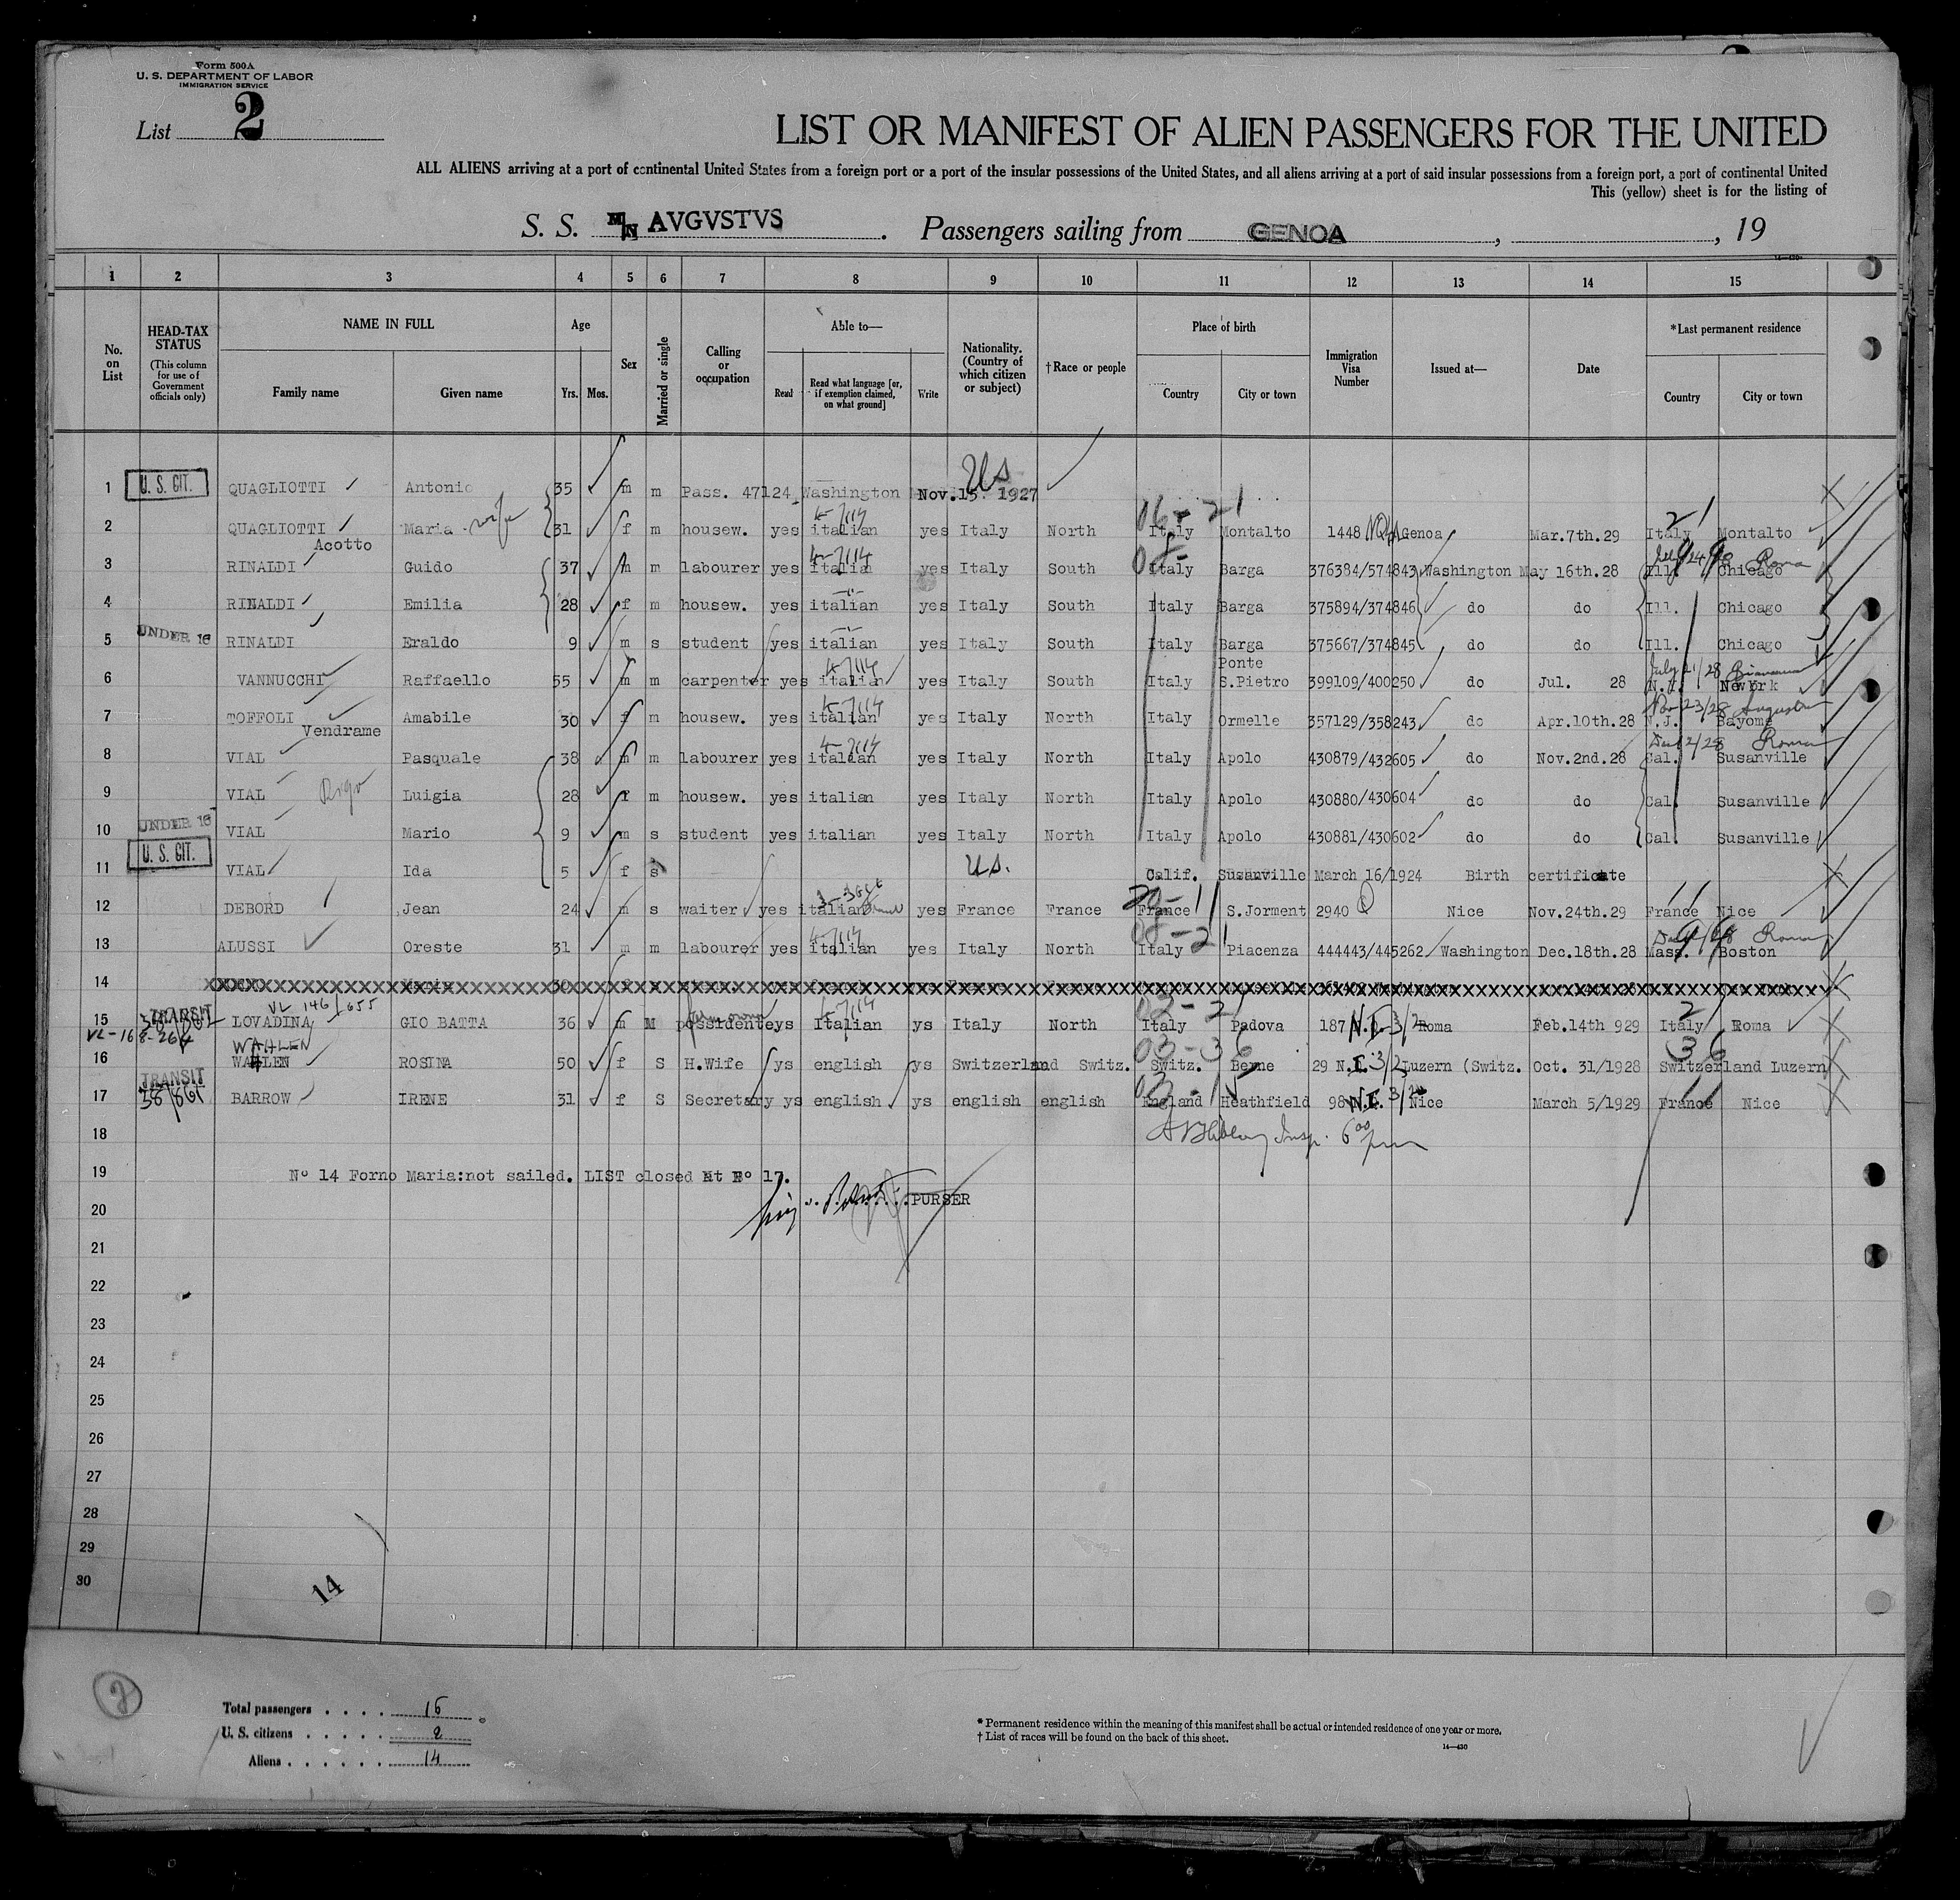 Form 500A
U. S. DEPARTMENT OF LABOR
IMMIGRATION SERVICE
List 2
LIST OR MANIFEST OF ALIEN PASSENGERS FOR THE UNITED
ALL ALIENS arriving at a port of continental United States from a foreign port or a port of the insular possessions of the United States, and all aliens arriving at a port of said insular possessions from a foreign port, a port of continental United
This (yellow) sheet is for the listing of
S. S. M/N AVGVSTVS. Passengers sailing from GENOA, , 19
14-430
1 2 3 4 5 6 7 8 9 10 11 12 13 14 15
No. on List
HEAD-TAX STATUS
(This column for use of Government officials only)
NAME IN FULL
Family name Given name
Age
Yrs. Mos.
Sex
Married or single
Calling or occupation
Able to—
Read
Read what language [or, if exemption claimed, on what ground]
Write
Nationality. (Country of which citizen or subject)
†Race or people
Place of birth
Country City or town
Immigration Visa Number
Issued at—
Date
*Last permanent residence
Country City or town
US
1 U. S. CIT. QUAGLIOTTI Antonio 35 m m Pass. 47124 Washington Nov.15 1927
06-21 21
2 QUAGLIOTTI Maria wife 31 f m housew. yes italian yes Italy North Italy Montalto 1448 NQ Genoa Mar.7th.29 Italy Montalto
Acotto
3 RINALDI Guido 37 m m labourer yes italian yes Italy South Italy Barga 376384/574843 Washington May 16th.28 Ill. Chicago Roma
4 RINALDI Emilia 28 f m housew. yes italian yes Italy South Italy Barga 375894/374846 do do Ill. Chicago
5 UNDER 16 RINALDI Eraldo 9 m s student yes italian yes Italy South Italy Barga 375667/374845 do do Ill. Chicago
Ponte
6 VANNUCCHI Raffaello 55 m m carpenter yes italian yes Italy South Italy S.Pietro 399109/400250 do Jul. 28 N.Y. New York
7 TOFFOLI Amabile 30 f m housew. yes italian yes Italy North Italy Ormelle 357129/358243 do Apr.10th.28 N.J. Bayome
Vendrame
8 VIAL Pasquale 38 m m labourer yes italian yes Italy North Italy Apolo 430879/432605 do Nov.2nd.28 Cal. Susanville Roma
9 VIAL Luigia 28 f m housew. yes italian yes Italy North Italy Apolo 430880/430604 do do Cal. Susanville
10 UNDER 16 VIAL Mario 9 m s student yes italian yes Italy North Italy Apolo 430881/430602 do do Cal. Susanville
11 U. S. CIT. VIAL Ida 5 f s U.S. Calif. Susanville March 16/1924 Birth certificate
12 DEBORD Jean 24 m s waiter yes italian yes France France France S.Jorment 2940 Nice Nov.24th.29 France Nice
13 ALUSSI Oreste 31 m m labourer yes italian yes Italy North Italy Piacenza 444443/445262 Washington Dec.18th.28 Mass. Boston Roma
14
VL 146/655
15 TRANSIT LOVADINA GIO BATTA 36 m M possidente ys Italian ys Italy North Italy Padova 187 N.I. 3/2 Roma Feb.14th 929 Italy Roma
WAHLEN
16 WAHLEN ROSINA 50 f S H.Wife ys english ys Switzerland Switz. Switz. Berne 29 N.I. 3/2 Luzern (Switz. Oct. 31/1928 Switzerland Luzern
17 TRANSIT BARROW IRENE 31 f S Secretary ys english ys english english England Heathfield 98 N.I. 3/2 Nice March 5/1929 France Nice
18 Insp. 6 00 pm
19 Nº 14 Forno Maria:not sailed. LIST closed at Nº 17.
20 PURSER
21
22
23
24
25
26
27
28
29
30
14
2
Total passengers . . . . 16
U. S. citizens . . . . . 2
Aliens . . . . . . 14
* Permanent residence within the meaning of this manifest shall be actual or intended residence of one year or more.
† List of races will be found on the back of this sheet.
14—430